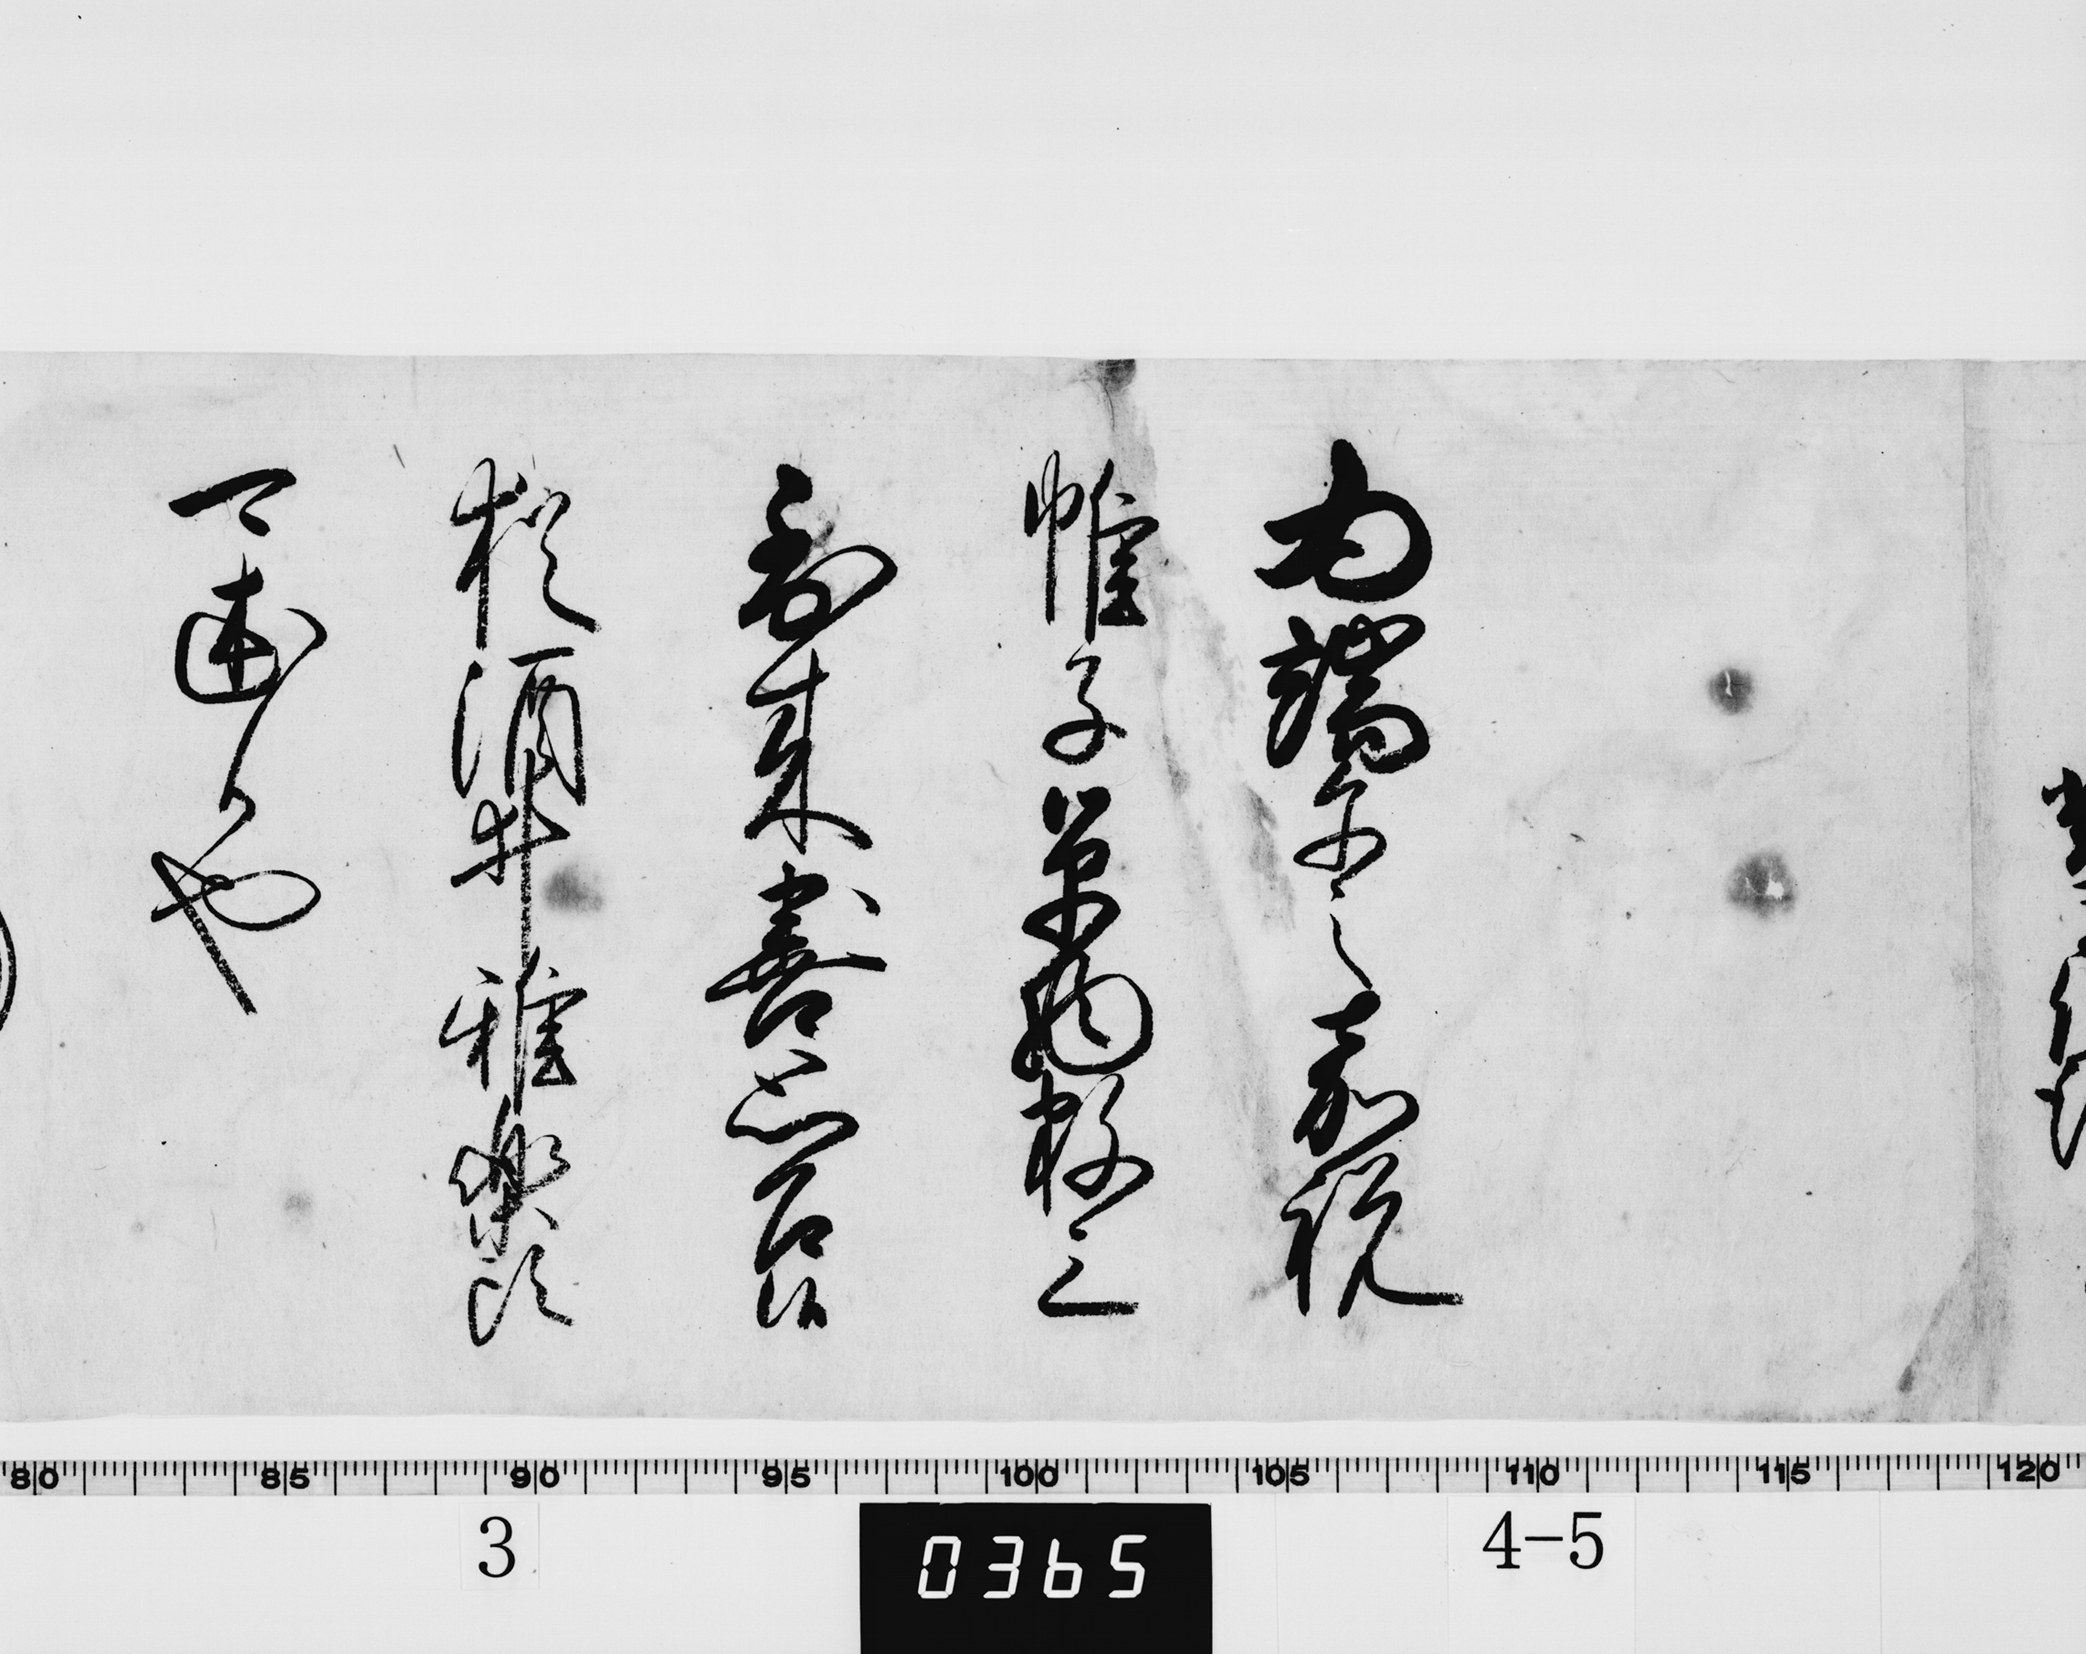 為端午之嘉祝
帷子単物数三
到来喜思召候
猶酒井雅楽頭
可述候也
80 85 90 95 100 105 110 115 120
3
0365
4-5